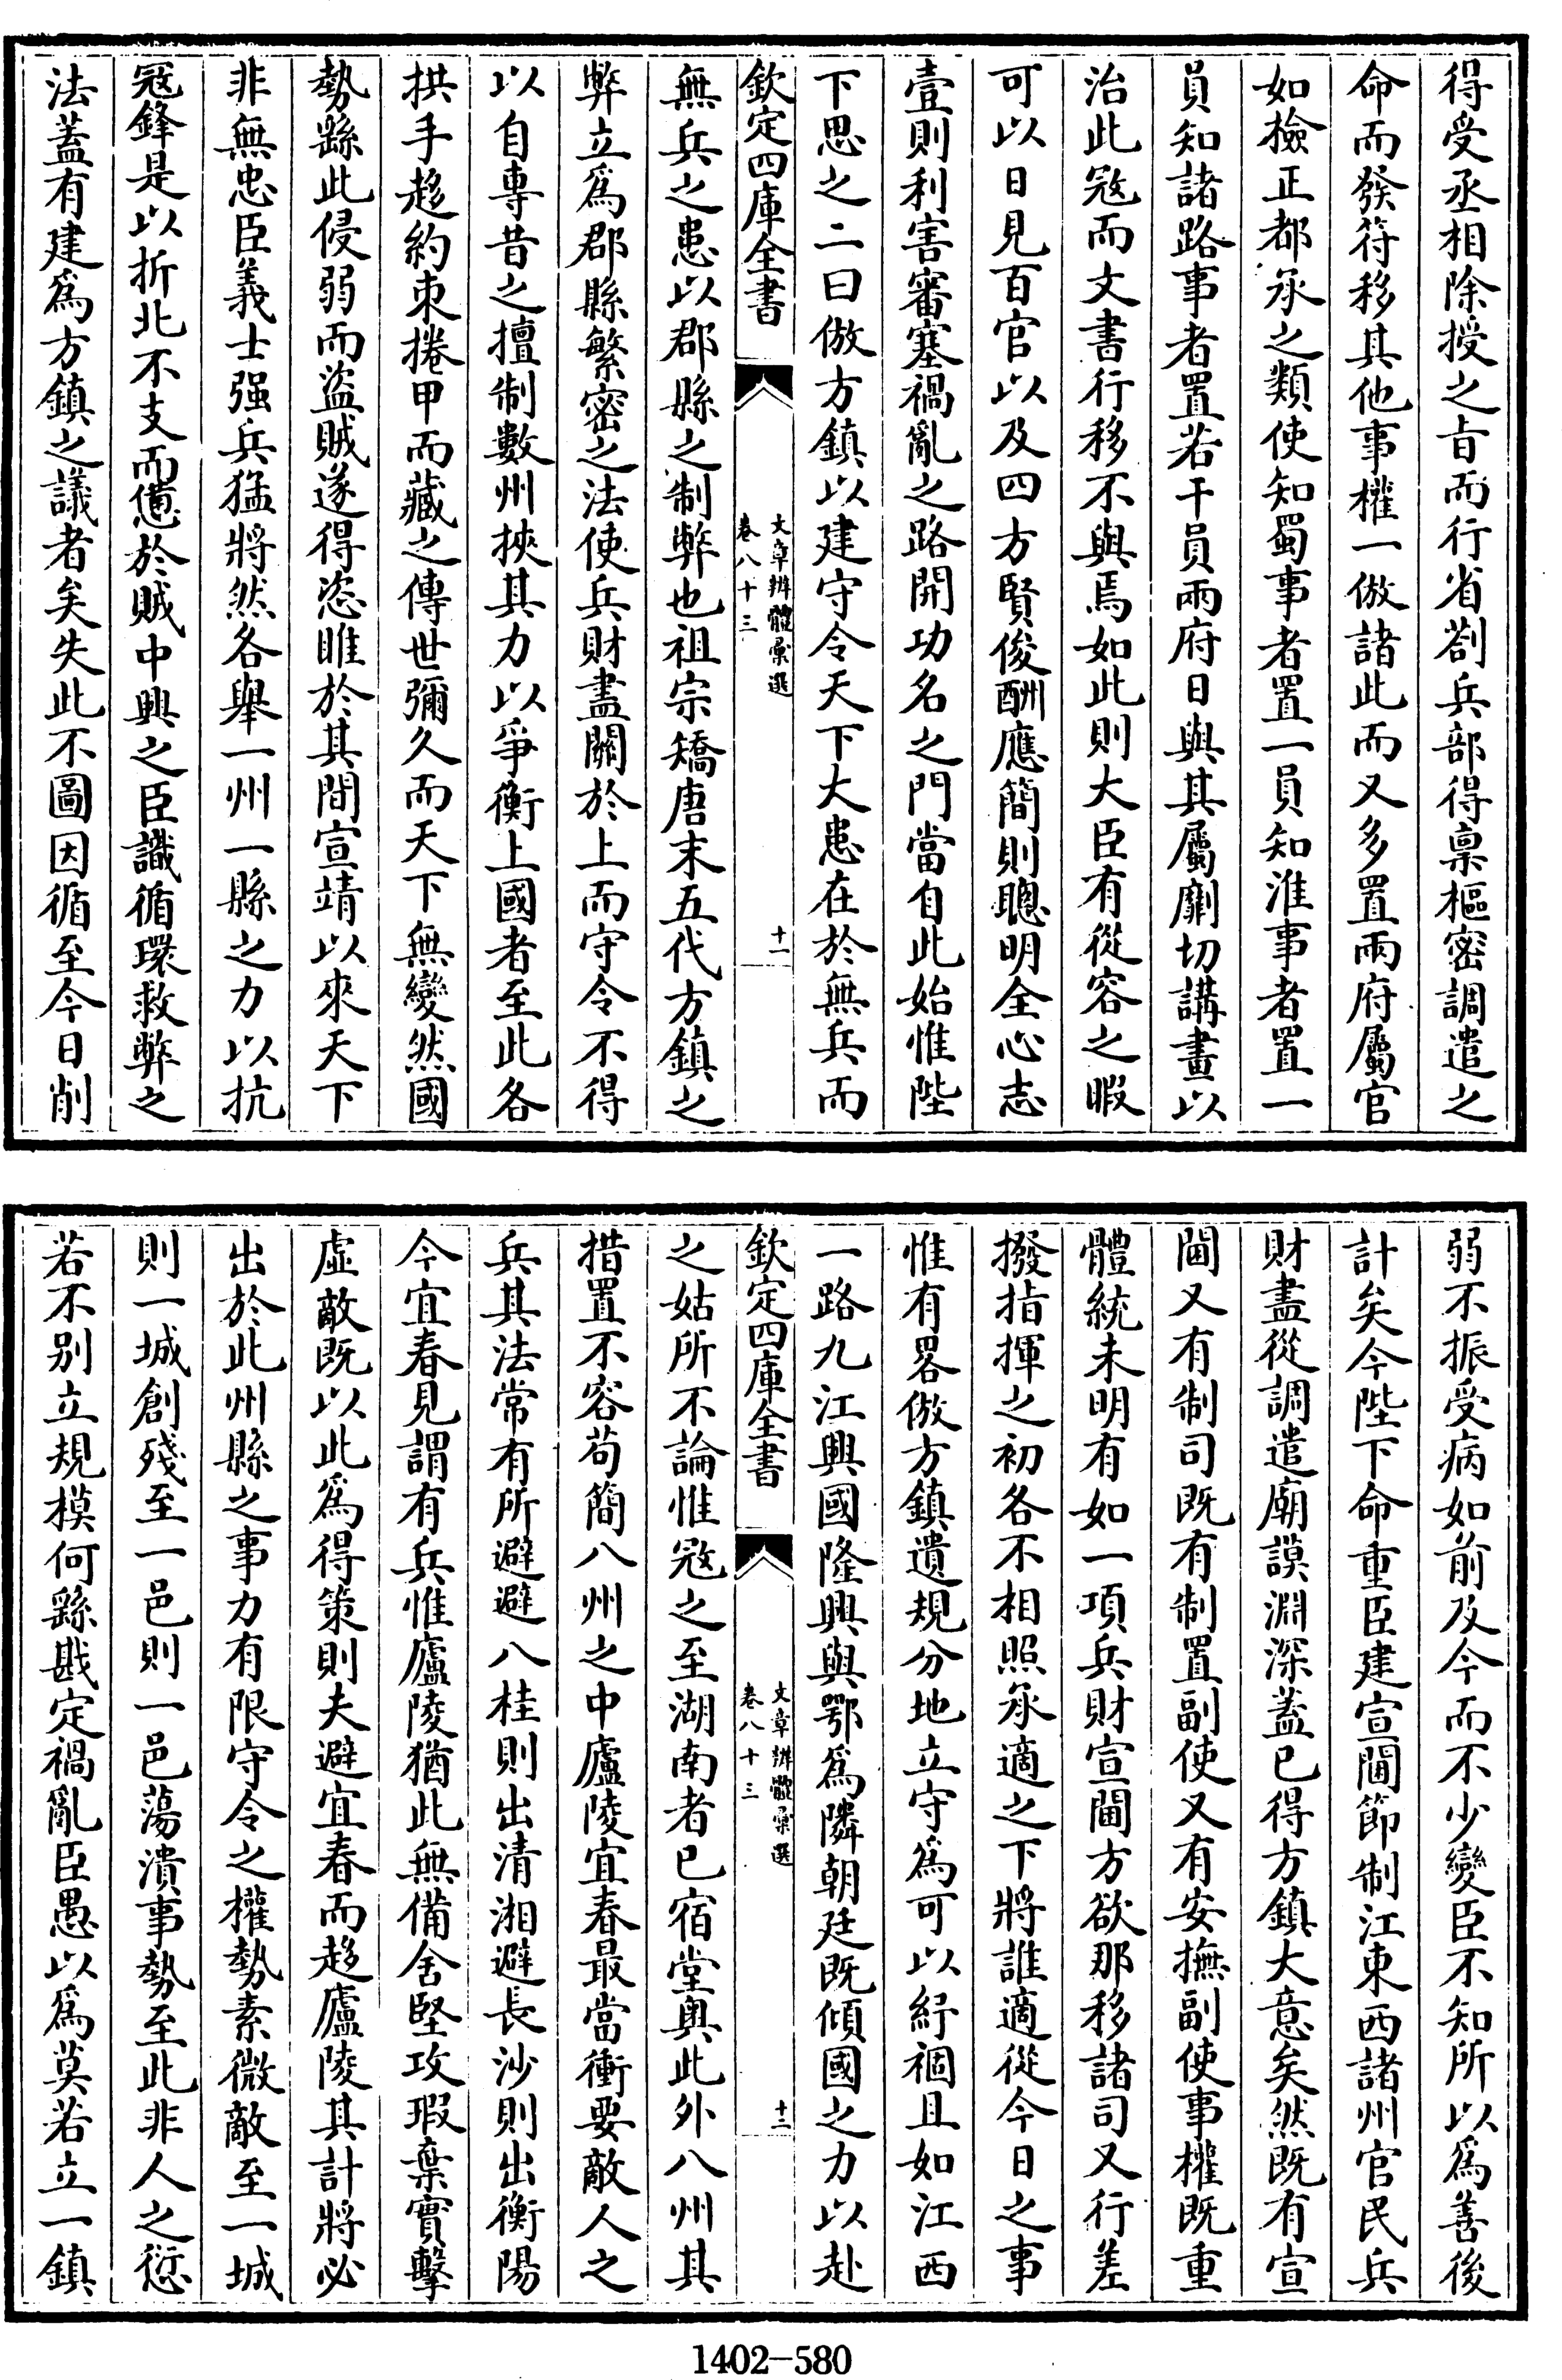 得受丞相除授之旨而行省劄兵部得禀樞密調遣之
命而發符移其他事權一倣諸此而又多置兩府屬官
如檢正都承之類使知蜀事者置一員知淮事者置一
員知諸路事者置若干員兩府日與其屬劘切講畫以
治此宼而文書行移不與焉如此則大臣有從容之暇
可以日見百官以及四方賢俊酬應簡則聰明全心志
壹則利害審塞禍亂之路開功名之門當自此始惟陛
下思之二曰倣方鎮以建守令天下大患在於無兵而
欽定四庫全書
文章辨體彚選
卷八十三
十一
無兵之患以郡縣之制弊也祖宗矯唐末五代方鎮之
弊立爲郡縣繁密之法使兵財盡關於上而守令不得
以自專昔之擅制數州挾其力以爭衡上國者至此各
拱手趍約束捲甲而藏之傳世彌久而天下無變然國
勢繇此侵弱而盜賊遂得恣睢於其間宣靖以來天下
非無忠臣義士强兵猛將然各舉一州一縣之力以抗
冦鋒是以折北不支而憊於賊中興之臣識循環救弊之
法葢有建爲方鎮之議者矣失此不圖因循至今日削
弱不振受病如前及今而不少變臣不知所以爲善後
計矣今陛下命重臣建宣閫節制江東西諸州官民兵
財盡從調遣廟謨淵深葢已得方鎮大意矣然既有宣
閫又有制司既有制置副使又有安撫副使事權既重
體統未明有如一項兵財宣閫方欲那移諸司又行差
撥指揮之初各不相照承適之下將誰適從今日之事
惟有畧倣方鎮遺規分地立守爲可以紓禍且如江西
一路九江興國隆興與鄂爲隣朝廷既傾國之力以赴
欽定四庫全書
文章辨體彚選
卷八十三
十二
之姑所不論惟宼之至湖南者已宿堂奥此外八州其
措置不容苟簡八州之中廬陵宜春最當衝要敵人之
兵其法常有所避避八桂則出清湘避長沙則出衡陽
今宜春見謂有兵惟廬陵猶此無備舍堅攻瑕棄實擊
虛敵既以此爲得策則夫避宜春而趍廬陵其計將必
出於此州縣之事力有限守令之權勢素微敵至一城
則一城創殘至一邑則一邑蕩潰事勢至此非人之愆
若不别立規模何繇戡定禍亂臣愚以爲莫若立一鎮
1402-580